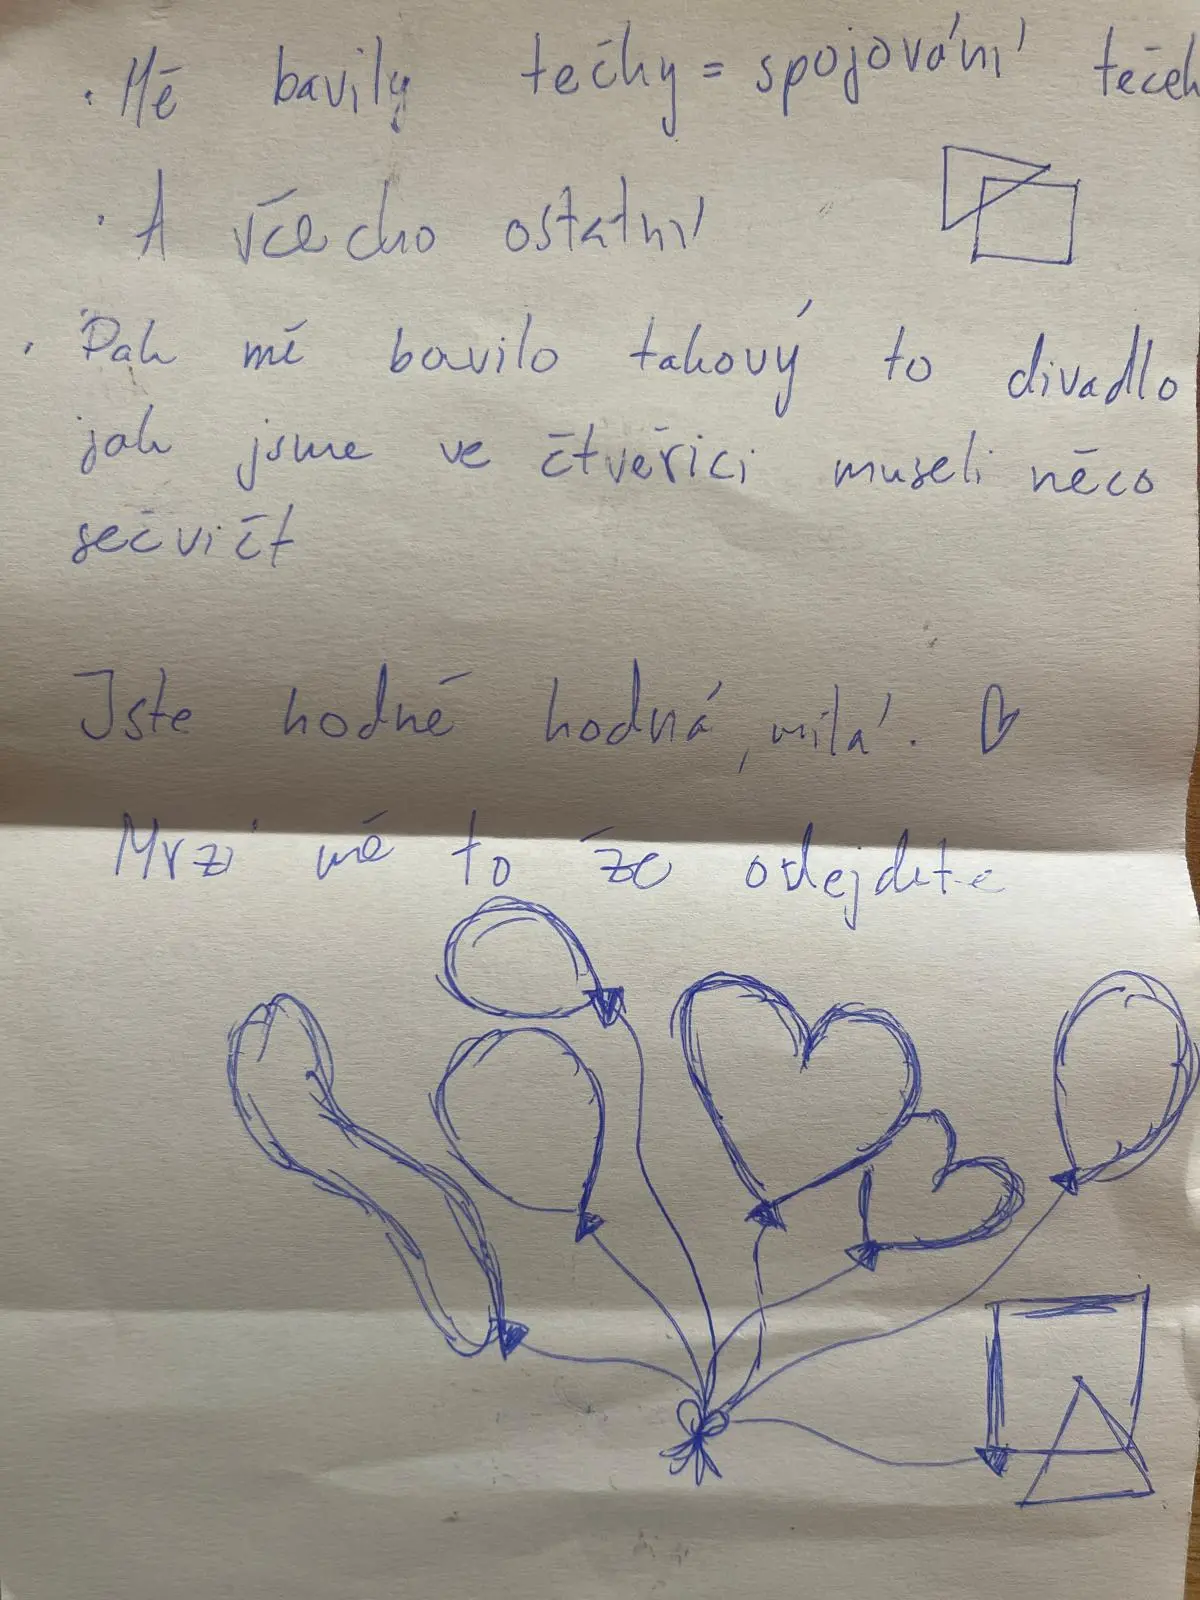 · Mě bavily tečky = spojování teček
· A všecho ostatní
· Pak mě bavilo takový to divadlo
jak jsme ve čtveřici museli něco
sečvičt
Jste hodně hodná, milá. ♡
Mrzí mě to že odejdete